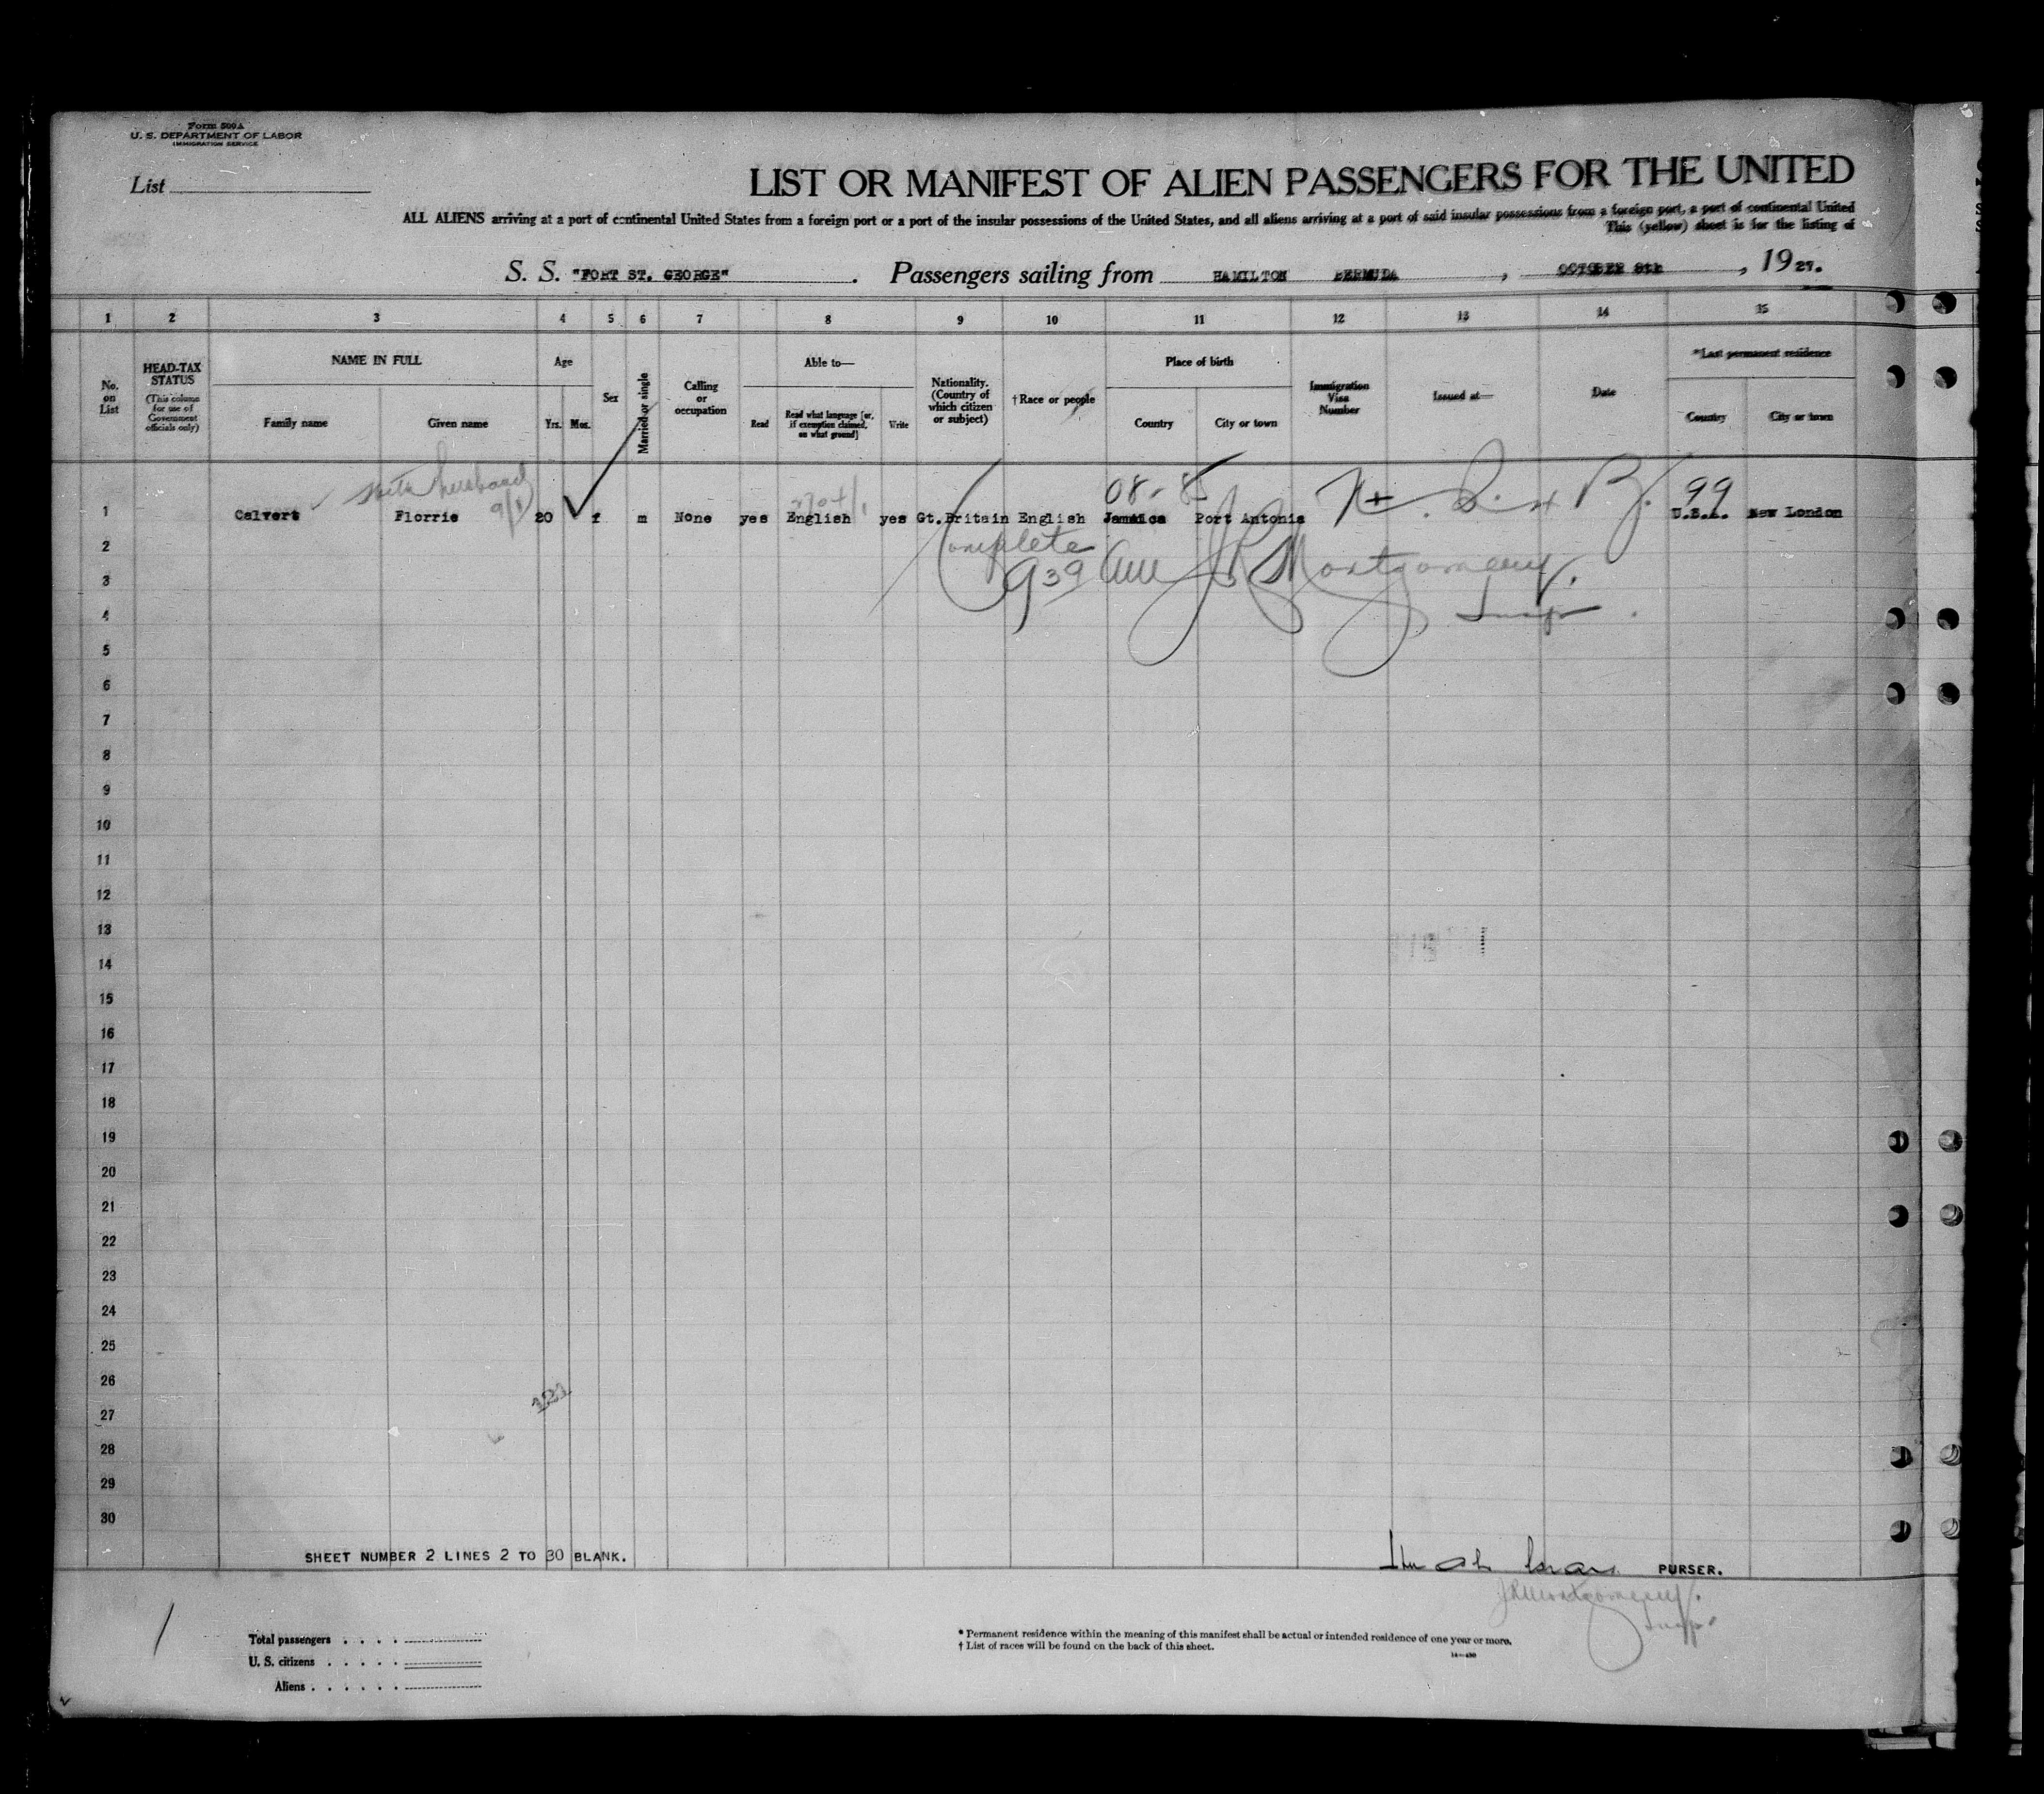 Form 500A
U. S. DEPARTMENT OF LABOR
IMMIGRATION SERVICE
List
LIST OR MANIFEST OF ALIEN PASSENGERS FOR THE UNITED
ALL ALIENS arriving at a port of continental United States from a foreign port or a port of the insular possessions of the United States, and all aliens arriving at a port of said insular possessions from a foreign port, a port of continental United
This (yellow) sheet is for the listing of
S. S. "FORT ST. GEORGE". Passengers sailing from HAMILTON BERMUDA, OCTOBER 8th, 1927.
1 2 3 4 5 6 7 8 9 10 11 12 13 14 15
No. on List
HEAD-TAX STATUS (This column for use of Government officials only)
NAME IN FULL
Family name Given name
Age
Yrs. Mos.
Sex
Married or single
Calling or occupation
Able to—
Read
Read what language [or, if exemption claimed, on what ground]
Write
Nationality. (Country of which citizen or subject)
†Race or people
Place of birth
Country City or town
Immigration Visa Number
Issued at—
Date
*Last permanent residence
Country City or town
with husband
08-8 99
1 Calvert Florrie 20 f m None yes English yes Gt.Britain English Jamaica Port Antonio U.S.A. New London
Complete
939 am J R Montgomery.
Insp.
2
3
4
5
6
7
8
9
10
11
12
13
14
15
16
17
18
19
20
21
22
23
24
25
26
121
27
28
29
30
SHEET NUMBER 2 LINES 2 TO 30 BLANK.
PURSER.
J R Montgomery.
Insp.
Total passengers
U. S. citizens
Aliens
* Permanent residence within the meaning of this manifest shall be actual or intended residence of one year or more.
† List of races will be found on the back of this sheet.